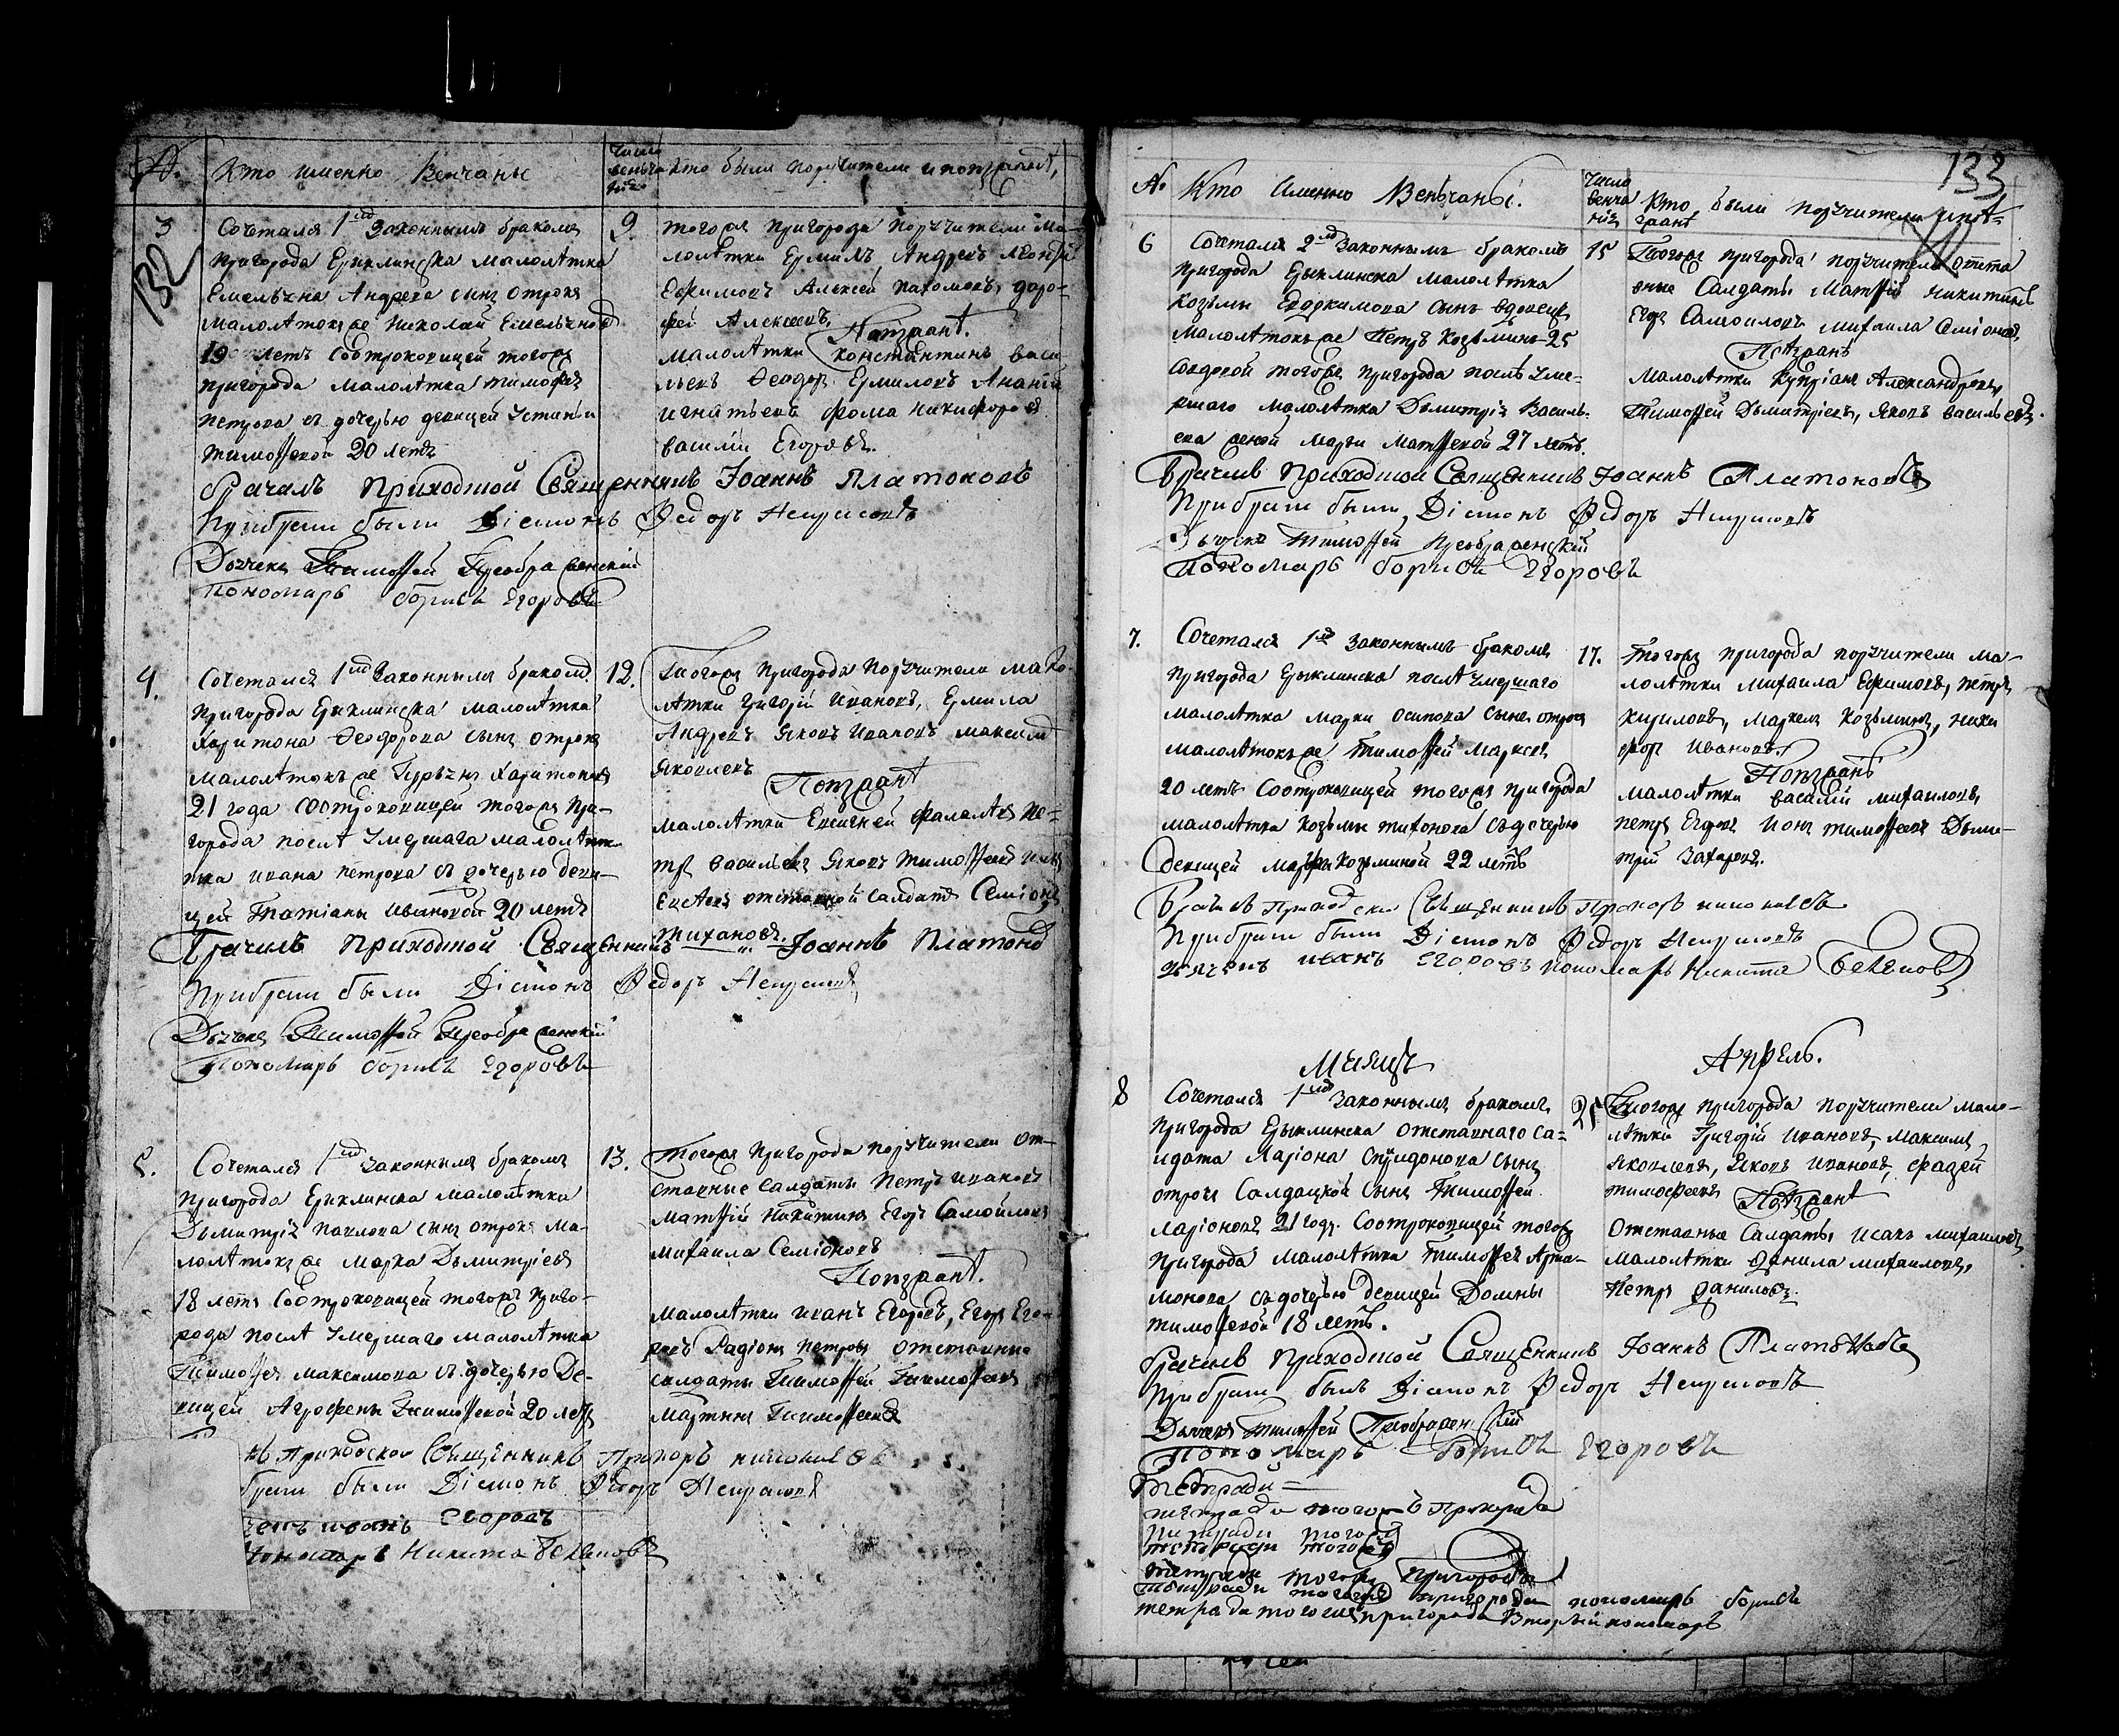 №.
Кто именно Венчаны
Число венчания
кто были поручители и поѣзжанѣ,
132
3
Сочетался 1мъ Законнымъ бракомъ
пригорода Ерыклинска малолѣтка
Емельяна Андреева сынъ отрокъ
малолѣтокъ же Николай Емельяновъ
19 летъ Соотроковицей тогожъ
пригорода малолѣтка тимофѣя
петрова съ дочерью девицей Устиньи
тимоѳѣевой 20 летъ
9
тогожъ пригорода поручители ма-
лолѣтки Ермилъ Андреевъ
Ефимовъ Алексей пахомовъ, доро-
фей Алексеевъ.
Поѣзжанѣ.
малолѣтки константинъ васи-
льевъ Ѳеодоръ Ермиловъ Ананій
игнатьевъ фома никифоровъ
василий Егоровъ.
брачалъ приходской Священникъ Іоаннъ Платоновъ
При брагѣ были Діаконъ Ѳедоръ
Дьячекъ Тимоѳей Преображенский
Пономарь борисъ Егоровъ
4.
Сочетался 1мъ Законнымъ бракомъ
пригорода Ерыклинска малолѣтка
Харитона Ѳеодорова сынъ отрокъ
малолѣтокъ же Гурьянъ Харитоновъ
21 года соотроковицей тогожъ при-
города послѣ умершага малолѣт-
тка ивана петрова съ дочерью деви-
цей Татіаны ивановой 20 летъ
12.
Тогожъ пригорода Поручители мало-
лѣтки григорій ивановъ, Ермила
Андреевъ Яковъ ивановъ максимъ
яковлевъ
Поѣзжанѣ
малолѣтки Евсигней фалалѣевъ пе-
тръ васильевъ Яковъ тимоѳѣевъ
отставной салдатъ Семіонъ
тихановъ.
Брачилъ приходской Священникъ Іоаннъ Платоновъ
При брагѣ были Діаконъ Ѳедоръ
Дьячекъ Тимоѳей Преображенский
Пономарь борисъ Егоровъ
5.
Сочетался 1мъ законнымъ бракомъ
пригорода Ерыклинска малолѣтка
Дьмитрія павлова сынъ отрокъ ма-
лолѣтокъ же марка Дьмитріевъ
18 летъ Соотроковицей тогожъ приго-
рода послѣ умершаго малолѣтка
Тимоѳея максимова съ дочерью Де-
вицей Агрофены Тимоѳѣевой 20 летъ
13.
Тогожъ пригорода поручители от-
ставные салдаты Петръ ивановъ
матѳій никитинъ Егоръ Самойловъ
михаила Семіоновъ
Поѣзжанѣ.
малолѣтки иванъ Егоровъ, Егоръ Его-
ровъ Радіонъ петровъ отставные
салдаты Тимоѳей Тимоѳѣевъ
мартынъ Тимоѳѣевъ
Приходской Священникъ Прохоръ николаевъ
были Діаконъ Ѳедоръ
иванъ Егоровъ
Пономарь Никита
133
№
Кто Именно Веньчаны.
Число венчания
Кто были поручители и поѣзжанѣ
6
Сочетался 2мъ Законнымъ бракомъ
пригорода Ерыклинска малолѣтка
козьмы Евдокимова сынъ вдовецъ
малолѣтокъ же Петръ козьминъ 25
Совдовой тогожъ пригорода послѣ уме-
ршаго малолѣтка Дьмитрія Василь-
ева женой Марѳы Матѳѣевой 27 летъ.
15
Тогожъ пригорода поручители отста
вные Салдаты Матѳій никитинъ
Егоръ Самоиловъ михаила Семіоновъ,
Поѣзжанѣ
малолѣтки купріянъ Александровъ,
Тимоѳей Дьмитріевъ, яковъ васильевъ.
Брачилъ приходской Священникъ Іоаннъ Платоновъ
При брагѣ были Діаконъ Ѳедоръ
Дьячекъ Тимоѳей Преображенский
Пономарь борисъ Егоровъ
7.
Сочетался 1мъ законнымъ бракомъ
пригорода Ерыклинска послѣ умершаго
малолѣтка марки осипова сынъ отрокъ
малолѣтокъ же Тимоѳей Марковъ
20 летъ Соотроковицей тогожъ пригорода
малолѣтка козьмы тихонова съ дочерью
девицей марѳы козьминой 22 летъ
17.
тогожъ пригорода поручители ма-
лолѣтки михаила Ефимовъ, петръ
кириловъ, маркелъ козьминъ, ники
форъ ивановъ.
Поѣзжанѣ
малолѣтки василій михаиловъ,
петръ Егоровъ иона тимоѳѣевъ Дьми-
трій захаровъ.
Брачилъ приходской Священникъ Прохоръ николаевъ
При брагѣ были Діаконъ Ѳедоръ
дьячекъ иванъ Егоровъ пономарь Никита
Месяцъ Апрель.
8
Сочетался 1мъ законнымъ бракомъ
пригорода Ерыклинска отставнаго са-
лдата Ларіона спиридонова сынъ
отрокъ Салдацкой сынъ Тимоѳей
ларіоновъ 21 году. Соотроковицей тогожъ
пригорода малолѣтка Тимоѳея Арта-
монова съ дочерью девицей Домны
тимоѳѣевой 18 летъ.
25
Тогожъ пригорода поручители мало-
лѣтки Григорій ивановъ, максимъ
яковлевъ, яковъ ивановъ, фадей
тимофеевъ
Поѣзжанѣ
Отставные Салдаты исакъ михаиловъ
малолѣтки данила михаиловъ,
Петръ даниловъ.
брачилъ приходской Священникъ Іоаннъ Платоновъ
При брагѣ былъ Діаконъ Ѳедоръ
Дьячекъ Тимоѳей Преображенский
Пономарь борисъ Егоровъ
Тетради
тетради тогожъ пригорода
тетради тогожъ
тетради тогожъ
тетради тогожъ пригорода
тетради тогожъ пригорода пономарь борисъ
тетради тогожъ пригорода Вторый пономарь